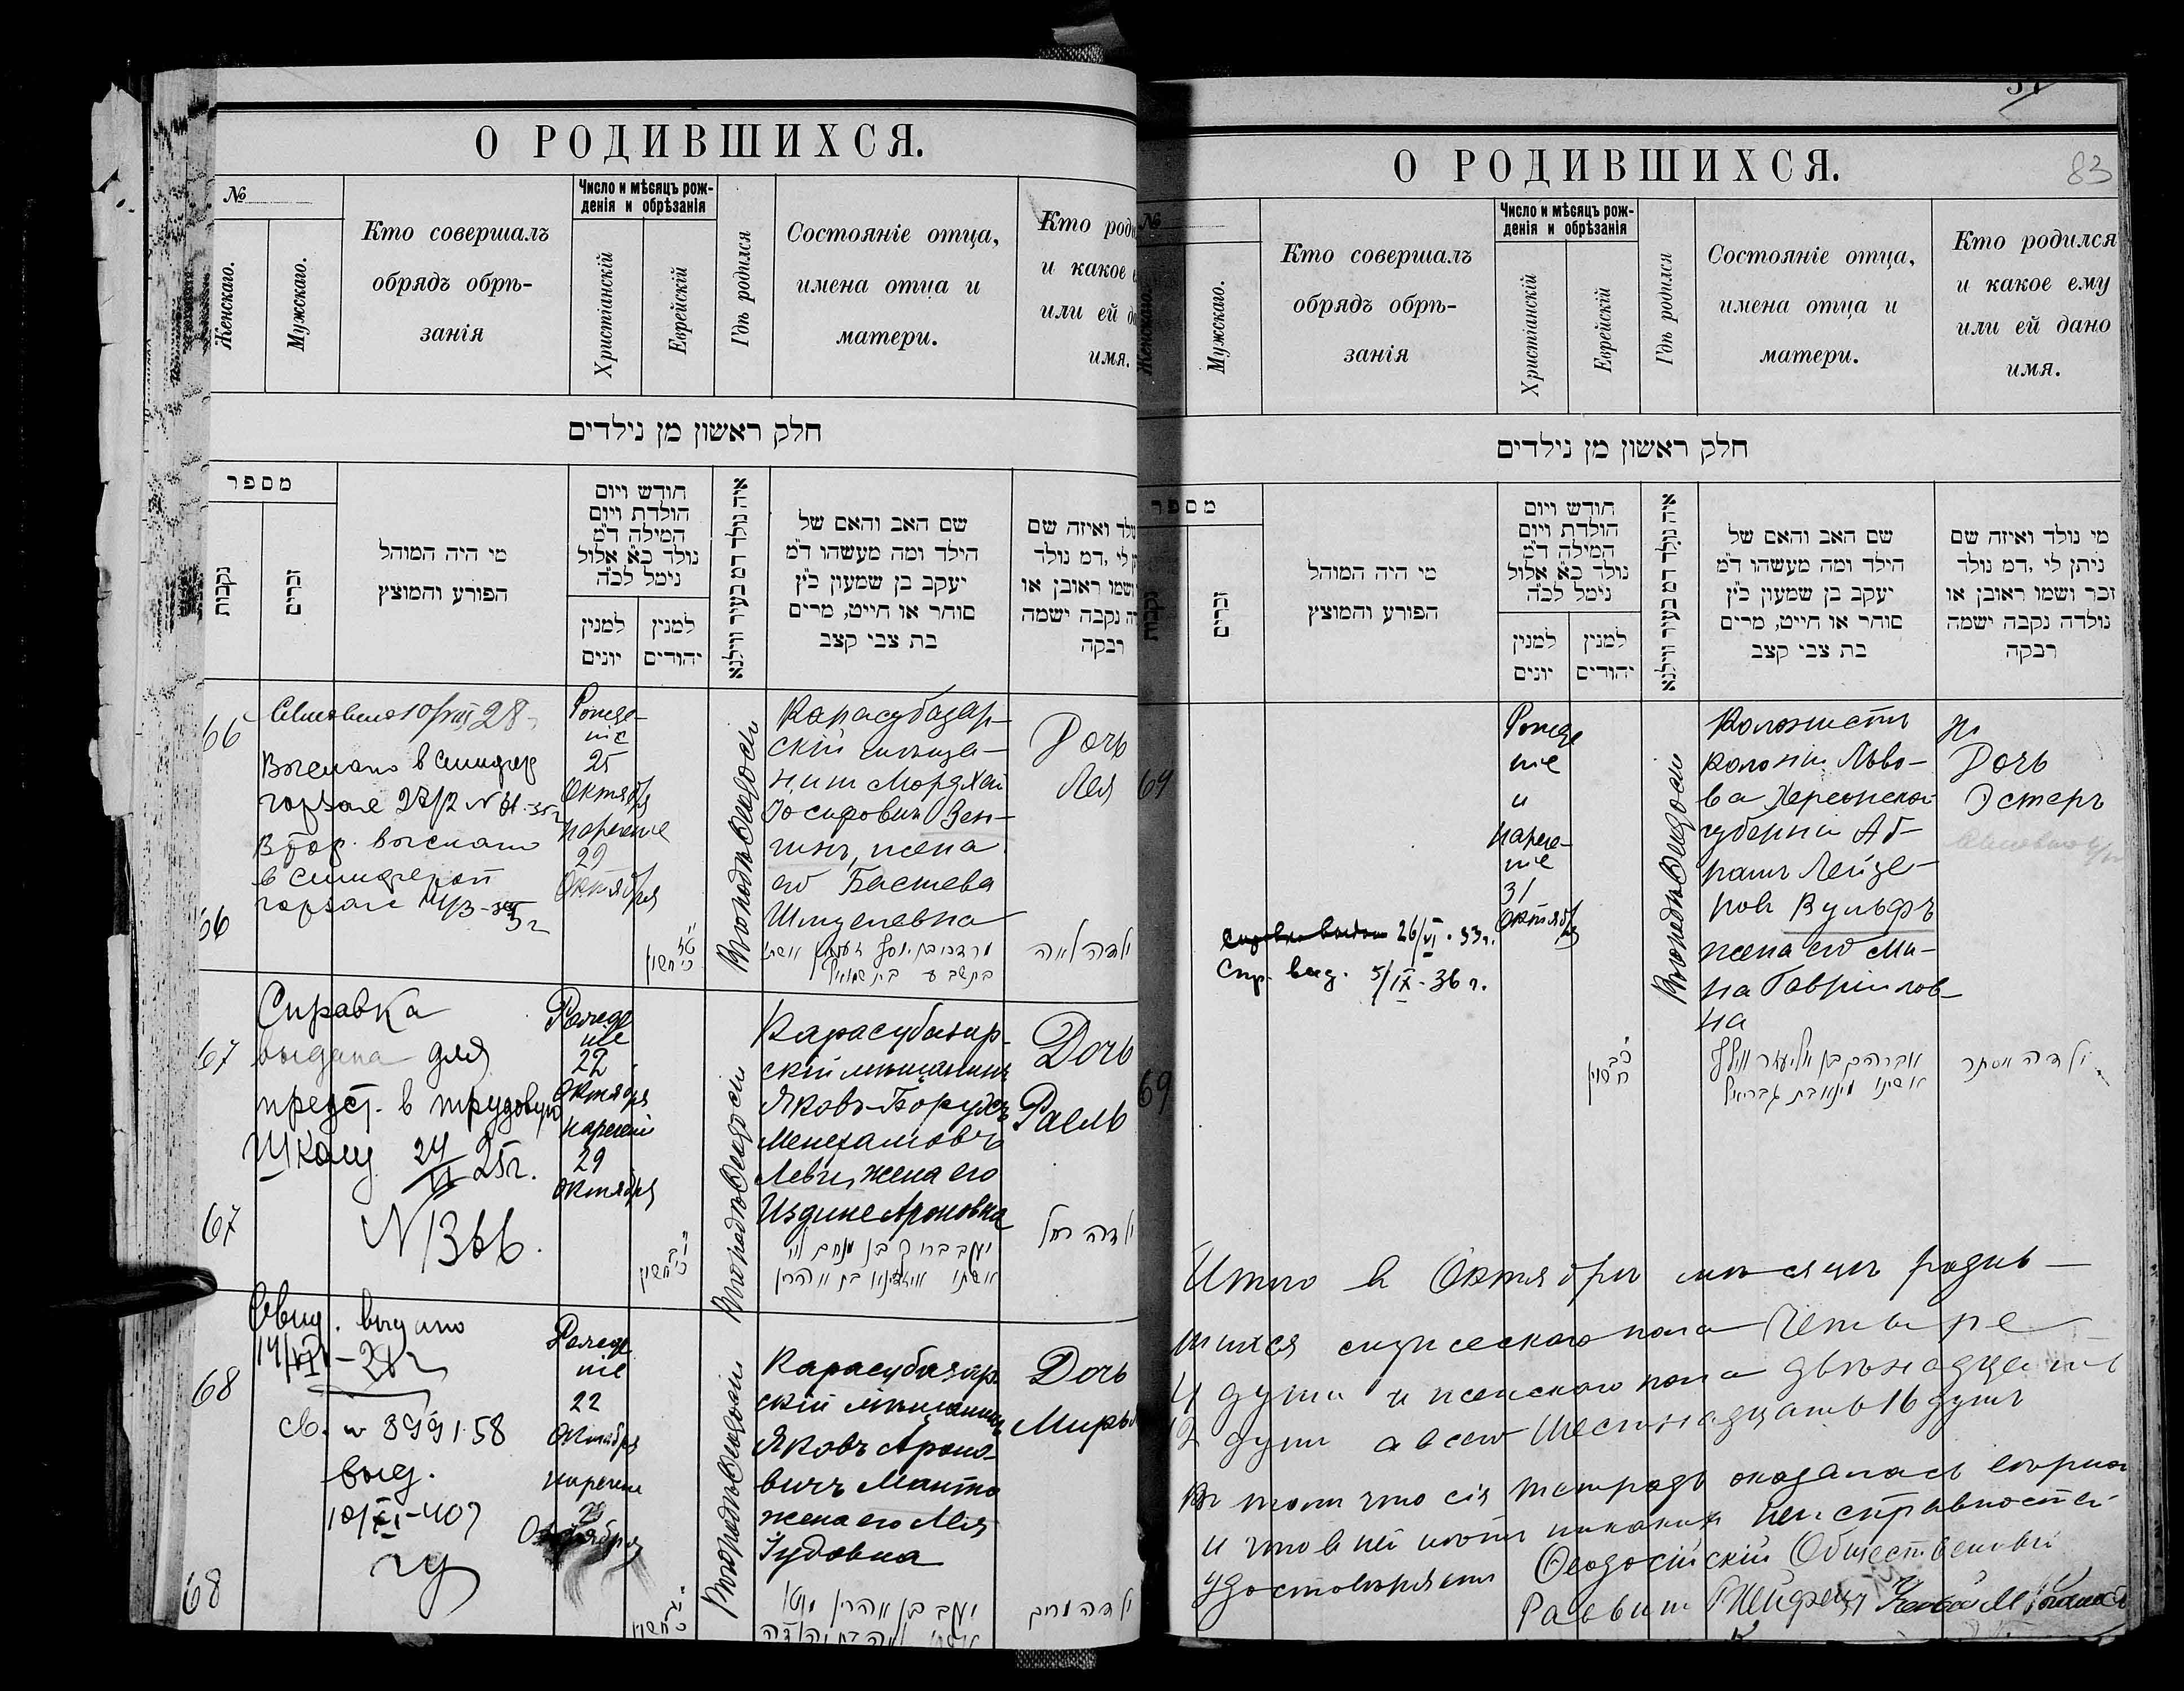 О РОДИВШИХСЯ.
№
Женскаго.
Мужскаго.
Кто совершалъ
обрядъ обрѣ-
занія
Число и мѣсяцъ рож-
денія и обрѣзанія
Христіанскій
Еврейскій
Гдѣ родился
Состояніе отца,
имена отца и
матери.
Кто роди
и какое
или ей да
имя.
חלק ראשון מן נילדים
מספר
נקבות
זכרים
מי היה המוהל
הפורע והמוצץ
חודש ויום
הולדת ויום
המילה ד״מ
נולד כ״א אלול
נימל לכ״ה
למנין
יונים
למנין
יהודים
איה נולד דמ בעיר ווילנא
שם האב והאם של
הילד ומה מעשהו ד״מ
יעקב בן שמעון כ״ץ
סוחר או חייט, מרים
בת צבי קצב
ולד ואיזה שם
לי ,דמ נולד
ושמו ראובן או
נקבה ישמה
רבקה
66
28
Выслано в симфер
горзагс 27/2 N 81-35г
Втор. выслано
в симфероп
горзагс
Рожде-
ніе
25
Октября
нареченіе
29
Октября
Въ городѣ Ѳеодосіи
Карасубазар-
скій мѣща-
нинъ Мордхай
Іосифовичъ Вен-
гинъ, жена
его Басшева
Шмулевна
Дочь
Лея
ילדה לאה
66
67
Справка
выдана для
предст. в трудовую
Школу 24/VI 25г.
N 1366.
Рожде
ніе
22
Октября
нареченіе
29
Октября
Въ городѣ Ѳеодосіи
Карасубазар-
скій мѣщанинъ
Яковъ-Борухъ
Менехамовъ
Леви, жена его
Издине Ароновна
יעקב ברוך בן מנחם לוי
אשתו בת אהרן
Дочь
Раель
ילדה רחל
67
68
Свид. выдано
св. № 899158
выд.
10/XI-40г
Рожде
ніе
22
Октября
нареченіе
29
Октября
Въ городѣ Ѳеодосіи
Карасубазар-
скій мѣщанинъ
Яковъ Ароно-
вичъ Мангто
жена его Лея
Іудовна
יעקב בן אהרן
Дочь
Мирья
ילדה מרים
68
О РОДИВШИХСЯ.
83
№
Женскаго.
Мужскаго.
Кто совершалъ
обрядъ обрѣ-
занія
Число и мѣсяцъ рож-
денія и обрѣзанія
Христіанскій
Еврейскій
Гдѣ родился
Состояніе отца,
имена отца и
матери.
Кто родился
и какое ему
или ей дано
имя.
חלק ראשון מן נילדים
מספר
נקבות
זכרים
מי היה המוהל
הפורע והמוצץ
חודש ויום
הולדת ויום
המילה ד״מ
נולד כ״א אלול
נימל לכ״ה
למנין
יונים
למנין
יהודים
איה נולד דמ בעיר ווילנא
שם האב והאם של
הילד ומה מעשהו ד״מ
יעקב בן שמעון כ״ץ
סוחר או חייט, מרים
בת צבי קצב
מי נולד ואיזה שם
ניתן לי ,דמ נולד
זכר ושמו ראובן או
נולדה נקבה ישמה
רבקה
69
Справка выдана 26/VI.33г.
Спр. выд. 5/IX-36 г.
Рожде
ніе
и
нарече-
ніе
31
Октября
Въ городѣ Ѳеодосіи
Колонистъ
колоніи Льво-
ва Херсонской
губерніи Аб-
рамъ Лейзе-
ровъ Вульфъ
жена его Ми-
на Гавриілов-
на
אברהם בן אליעזר וולף
אשתו מינא בת גבריאל
Дочь
Эстеръ
ילדה אסתר
69
Итого въ Октябрѣ мѣсяцѣ родив-
шихся мужескаго пола четыре
4 души и женскаго пола двѣнадцать
12 душъ а всего шестнадцать 16 душъ
Въ томъ что сія тетрадь оказалась вѣрной
и что въ ней нѣтъ никакихъ неисправностей
удостовѣряемъ Ѳеодосійскій Общественный
Раввинъ